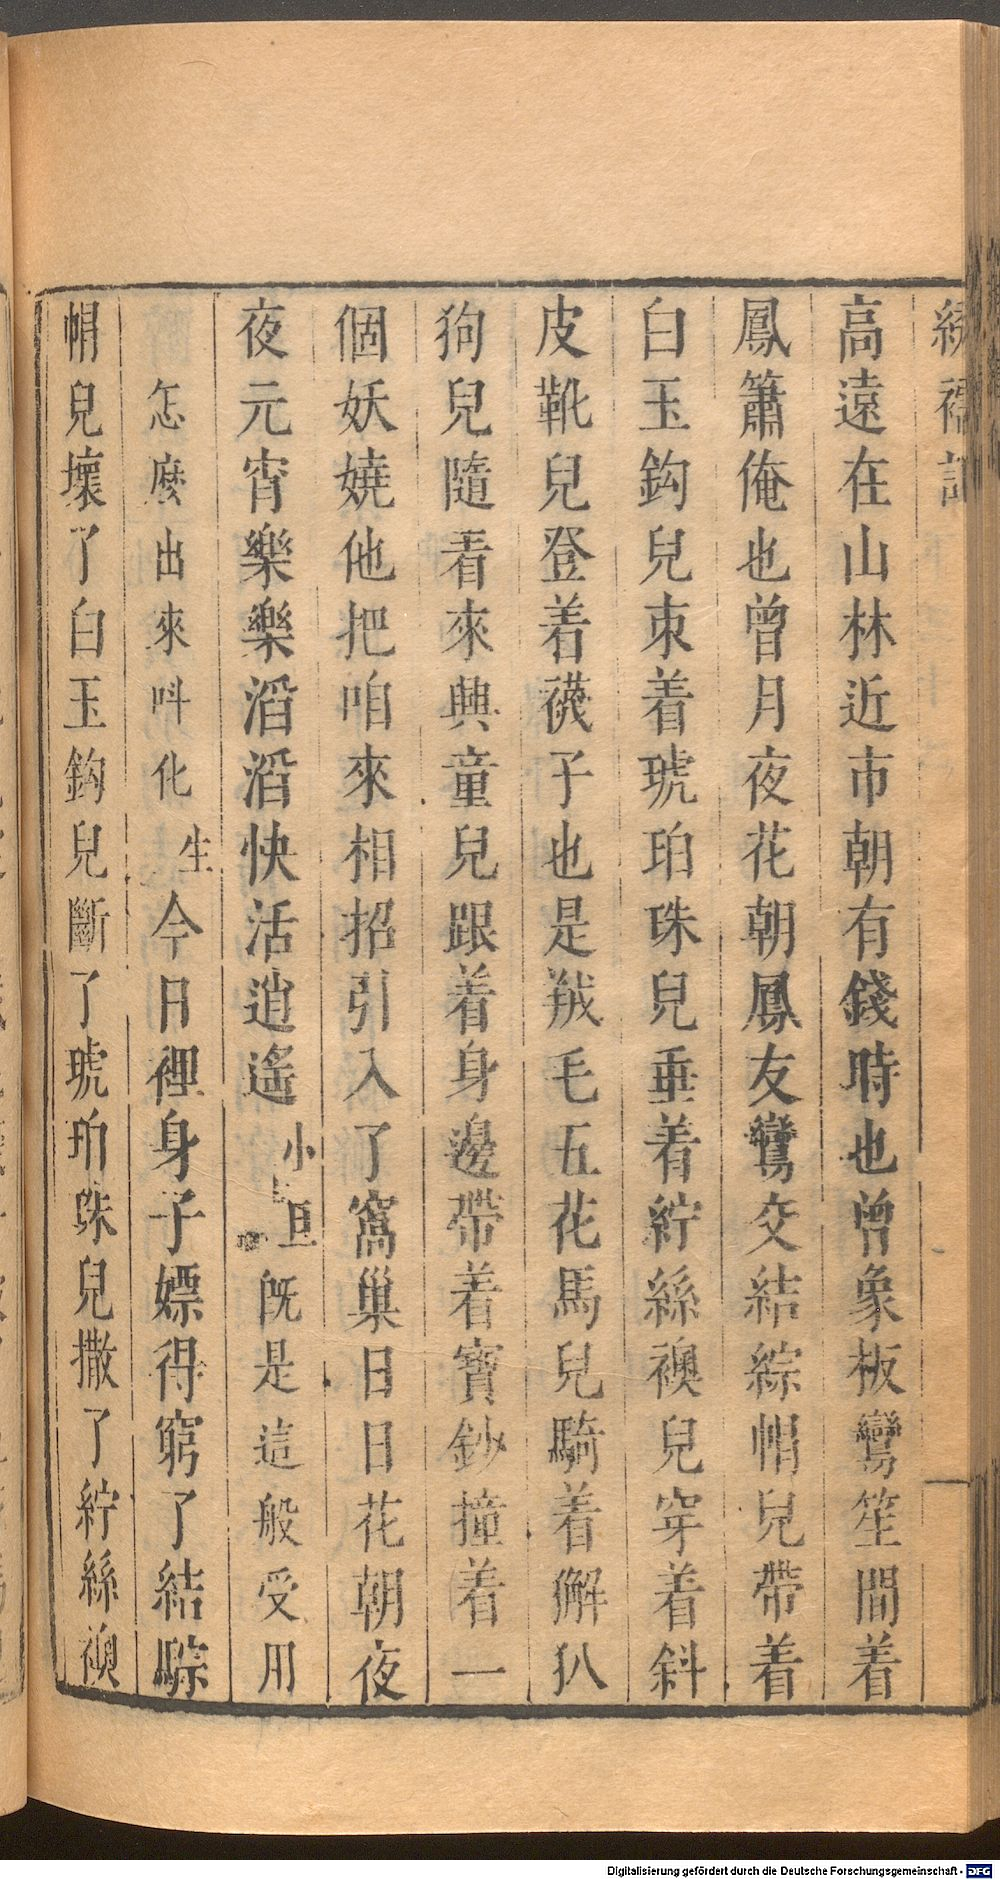 繡襦記
高遠在山林近市朝有錢時也曾象板鸞笙間着
鳳簫俺也曾月夜花朝鳳友鸞交結綜帽兒帶着
白玉鈎兒束着琥珀珠兒垂着紵絲襖兒穿着斜
皮靴兒登着襪子也是羢毛五花馬兒騎着獬犯
狗兒隨着來興童兒跟着身邊帶着寶鈔撞着一
個妖嬈他把咱來相招引入了窩巢日日花朝夜
夜元宵樂樂滔滔快活逍遙 小旦 既是這般受用
怎麽出來呌化 生 今日裡身子嫖得窮了結騌
帽兒壞了白玉鈎兒斷了琥珀珠兒撒了紵絲襖
Digitalisierung gefördert durch die Deutsche Forschungsgemeinschaft - DFG